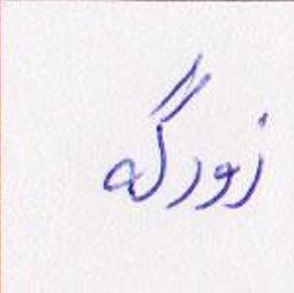 زورگه